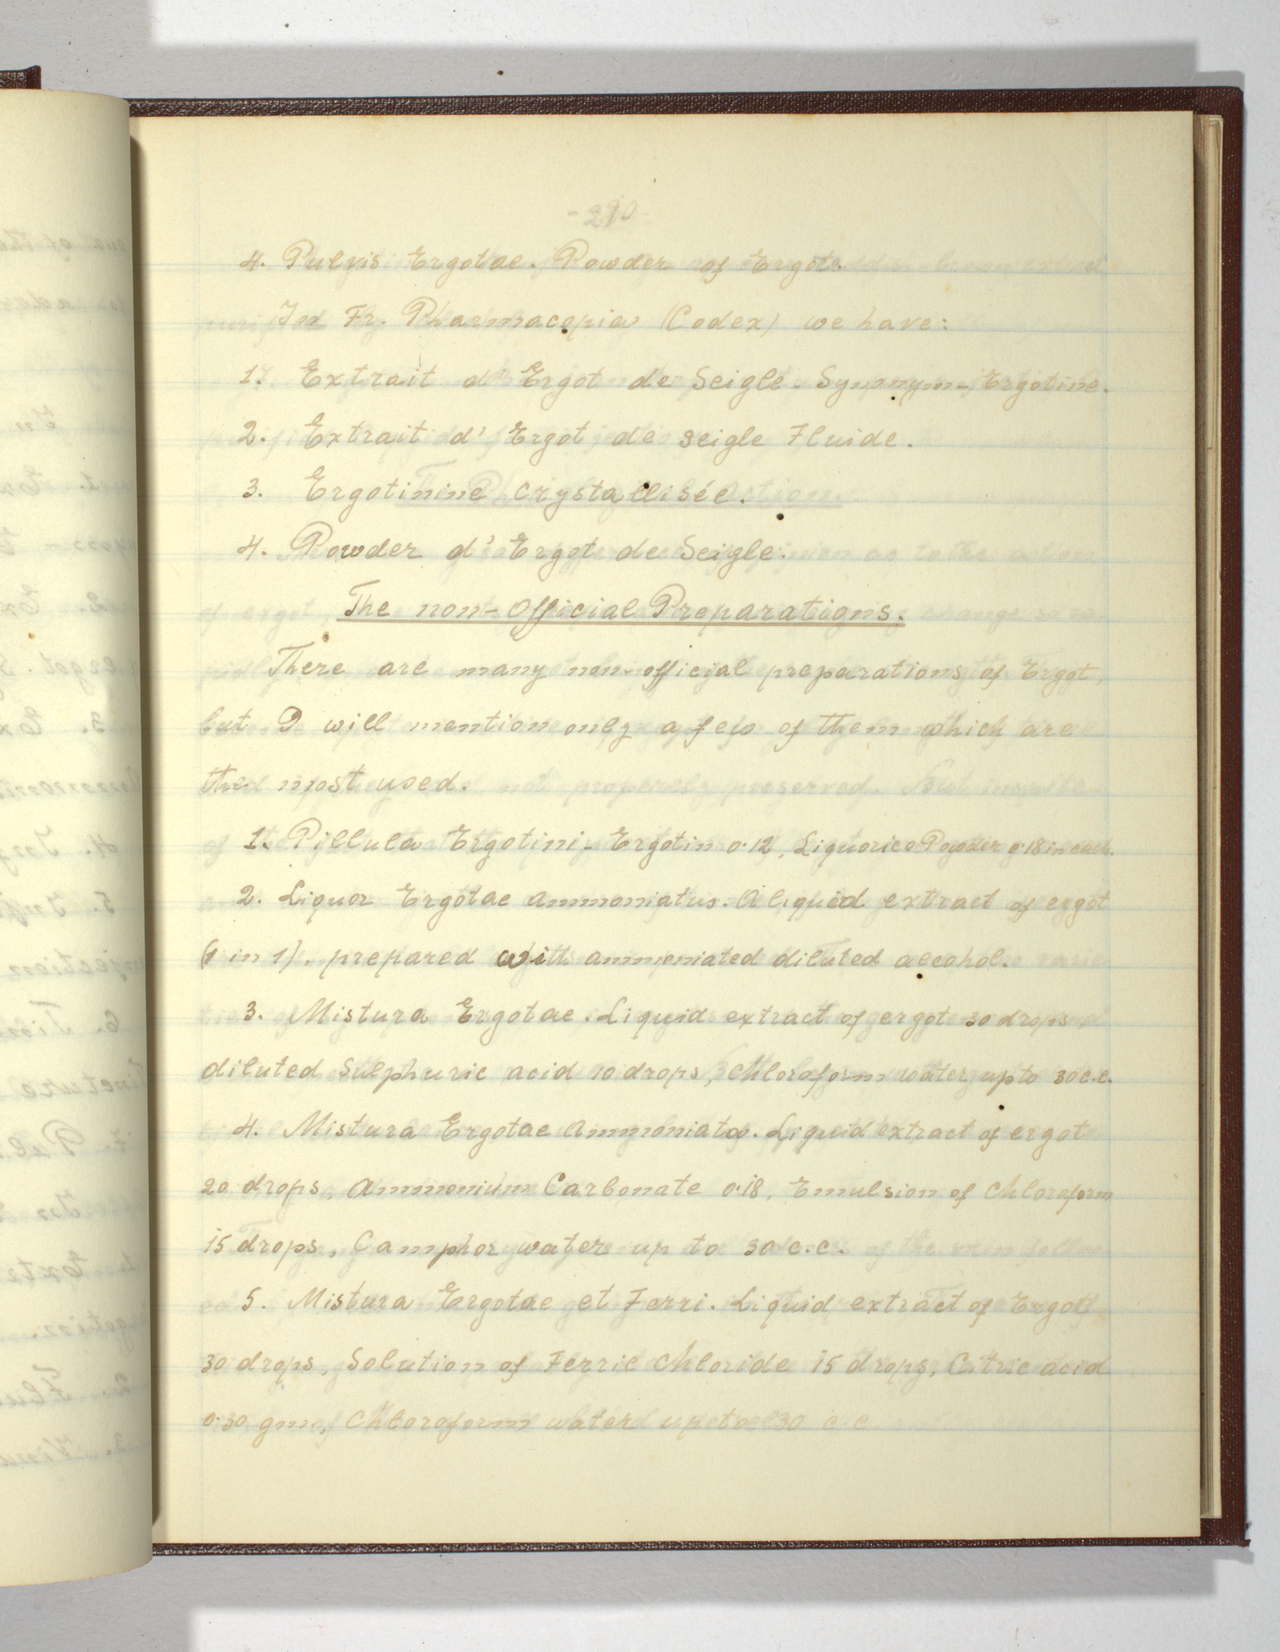 4. Pulvis Ergotae. Powder of Ergote
In Fr. Pharmacopia (Codex) we have:
1. Extrait d' Ergot de Seigle. Synonym - Ergotine.
2. Extrait d' Ergot de seigle Fluide.
3. Ergotinine crystallisée.
4. Powder d' Ergot de Seigle.
The non-Official Preparations.
There are many non-official preparations of Ergot,
but I will mention only a few of them which are
the most used.
1. Pillula Ergotini - Ergotin 0.12, Liquorice Powder 0.18 in each.
2. Liquor Ergotae Ammoniatus. A liquid extract of ergot
(1 in 1), prepared with ammoniated diluted alcohol.
3. Mistura Ergotae. Liquid extract of ergot 30 drops
diluted Sulphuric acid 10 drops, Chloroform water up to 30 c.c.
4. Mistura Ergotae Ammoniata. Liquid extract of ergot
20 drops, Ammonium Carbonate 0.18, Emulsion of Chloroform
15 drops, Camphor water up to 30 c.c.
5. Mistura Ergotae et Ferri. Liquid extract of Ergot
30 drops, Solution of Ferric Chloride 15 drops, Citric acid
0.30 gm, Chloroform water up to 30 c.c.